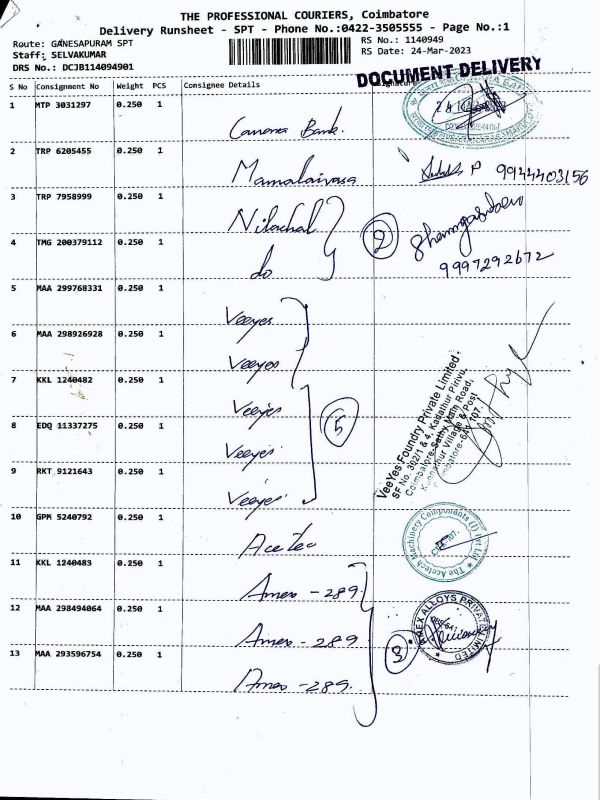 THE PROFESSIONAL COURIERS, Coimbatore
Delivery Runsheet - SPT - Phone No.:0422-3505555 - Page No.:1
Route: GANESAPURAM SPT
Staff: SELVAKUMAR
DRS No.: DCJB114094901
RS No.: 1140949
RS Date: 24-Mar-2023
DOCUMENT DELIVERY
S No Consignment No Weight PCS Consignee Details
1 MTP 3031297 0.250 1
Canara Bank.
2 TRP 6205455 0.250 1
P 9944403156
3 TRP 7958999 0.250 1
Nilachal
2
4 TMG 200379112 0.250 1
do
9997292672
5 MAA 299768331 0.250 1
Veeyes
6 MAA 298926928 0.250 1
Veeyes
7 KKL 1240482 0.250 1
Veeyes
8 EDQ 11337275 0.250 1
5
Veeyes
9 RKT 9121643 0.250 1
Veeyes
VeeYes Foundry Private Limited.
SF No. 302/1 & 4, Kadathur Pirivu,
Coimbatore-Sathy Main Road,
Village & Post
10 GPM 5240792 0.250 1
Acetec
The Acetech Machinery Components (I) Pvt Ltd
11 KKL 1240483 0.250 1
Amex - 289.
12 MAA 298494064 0.250 1
Amex - 289
AMEX ALLOYS PRIVATE LIMITED
3
13 MAA 293596754 0.250 1
Amex - 289.